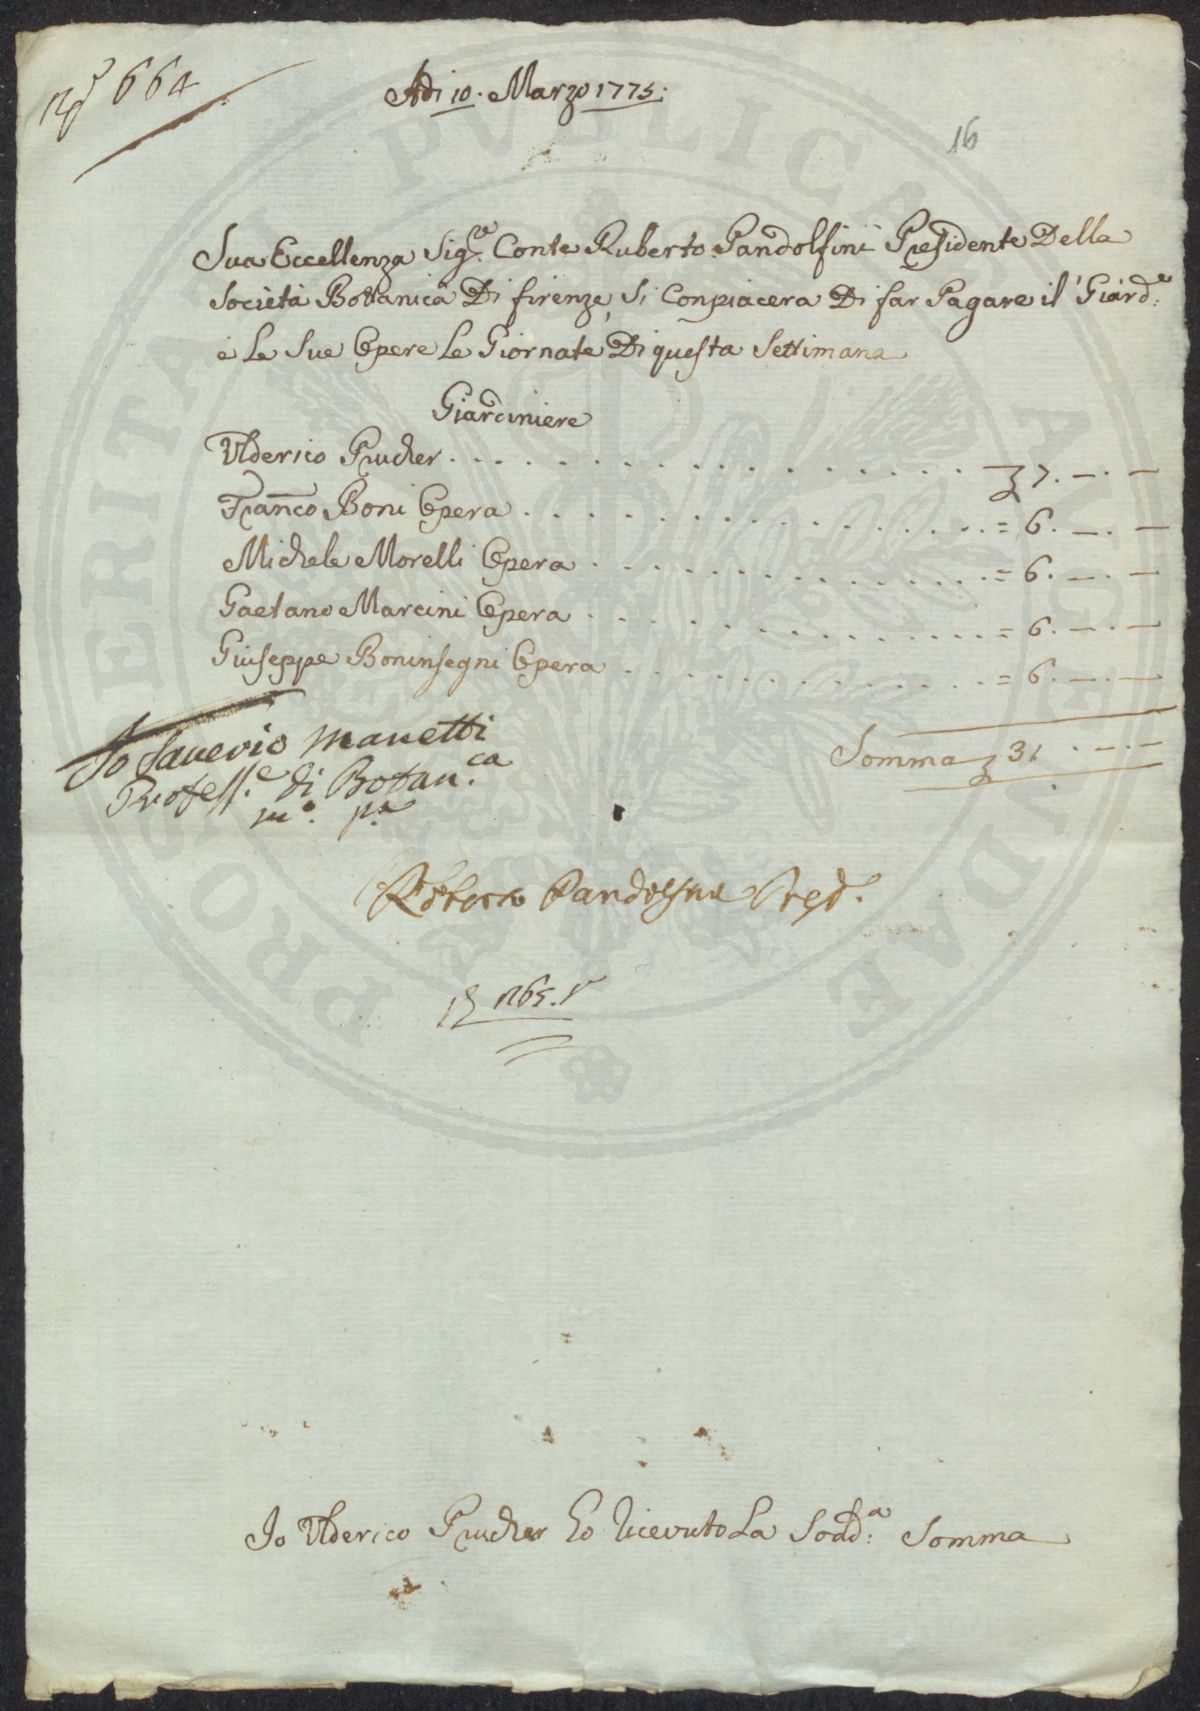 Nº 664
Adi 10. Marzo 1775.
16
Sua Eccellenza Sig.re Conte Ruberto Pandolfini Presidente Della
Società Bottanica Di firenze, Si Conpiacera Di far Pagare il Giard.e
e Le Sue Opere Le Giornate Di questa Settimana
Giardiniere
Ulderico Prucker . . . . . . . . . . . . . . . . 7. — . —
Franco Boni Opera . . . . . . . . . . . . . . . = 6. — . —
Michele Morelli Opera . . . . . . . . . . . . . = 6. — . —
Gaetano Marcini Opera . . . . . . . . . . . . . = 6. — . —
Giuseppe Boninsegni Opera . . . . . . . . . . . = 6. — . —
Somma 31 . — . —
Io Saverio Manetti
Profess.e di Botan.ca
m.o p.a
Roberto Pandolfini Pres.
1765.
Io Ulderico Prucker Ho Ricevuto La Sodd.a Somma
PROSPERITATI PUBLICAE AUGENDAE